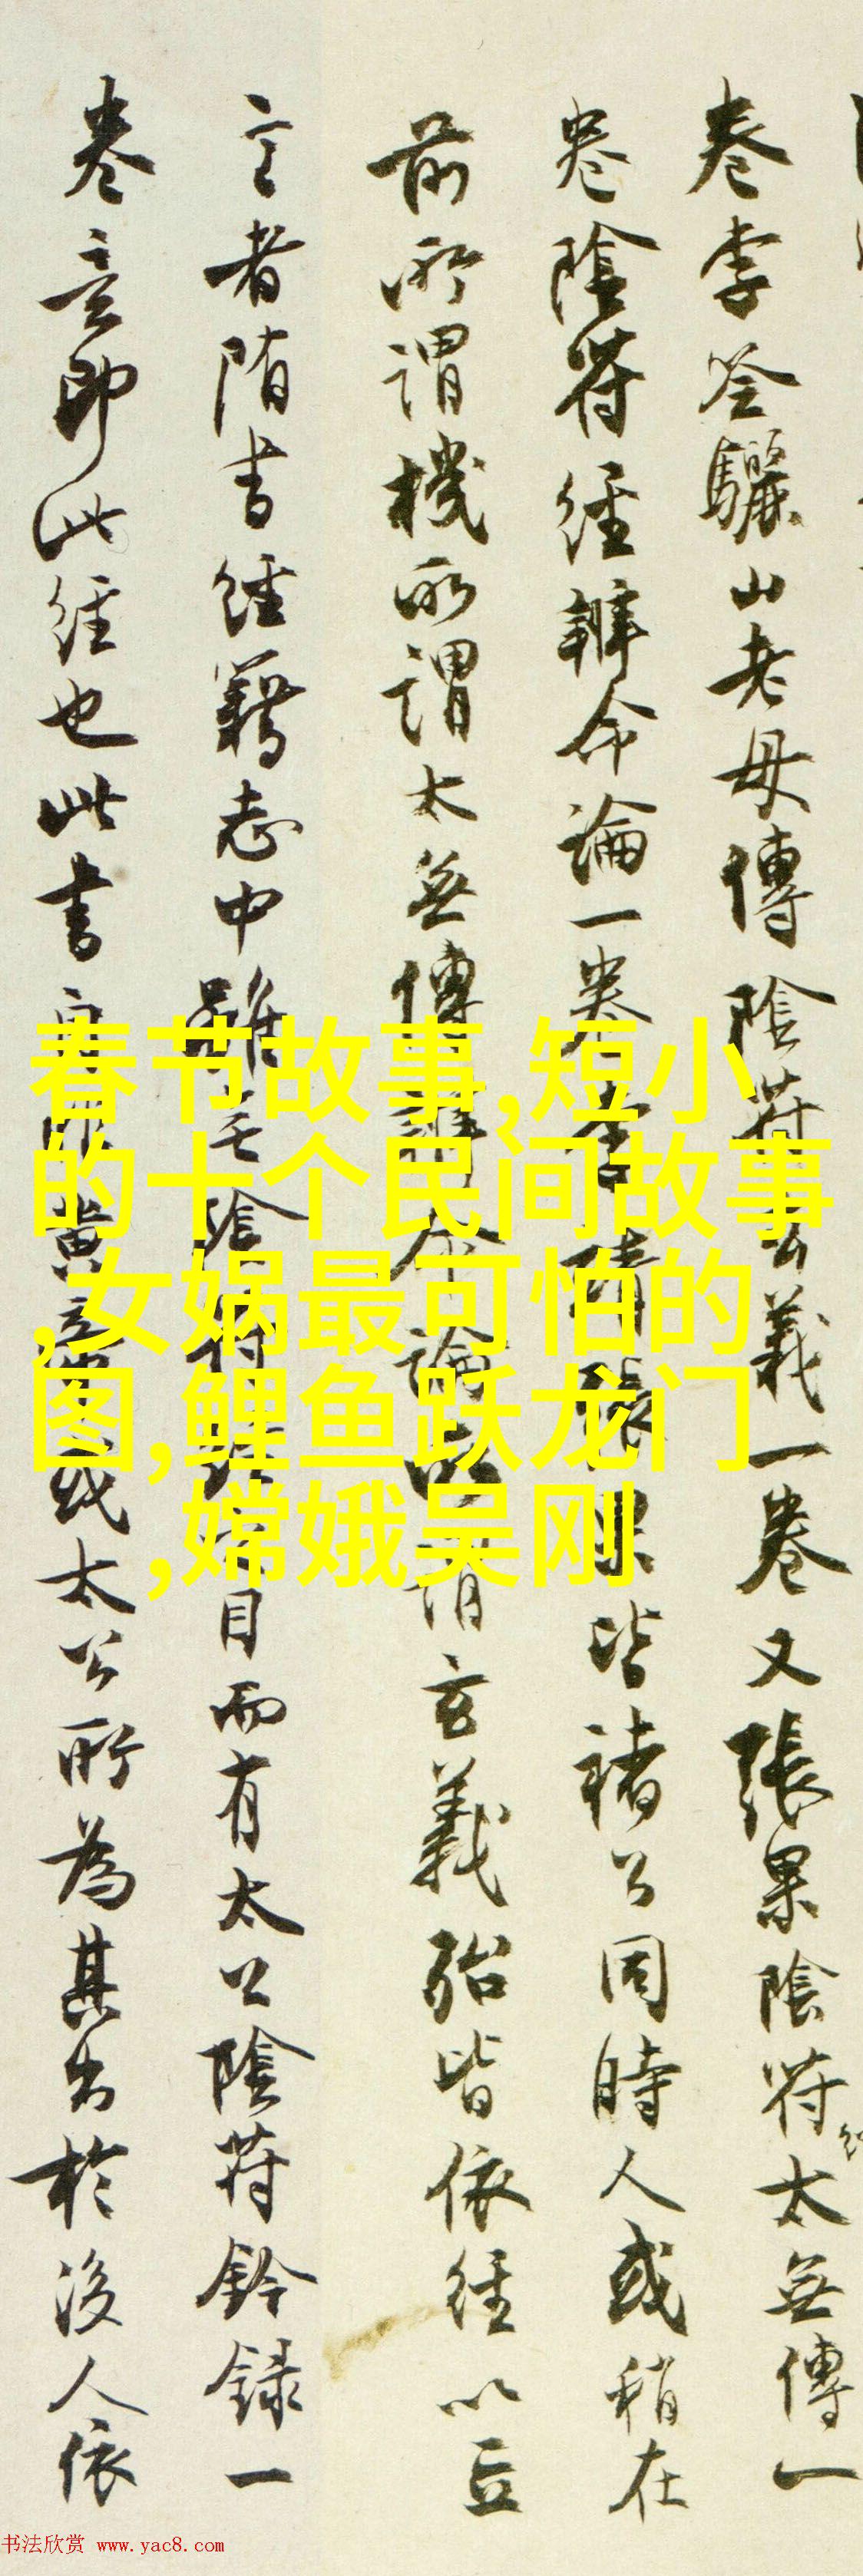 卷李筌驪山老母傳陰符玄義一卷又張果陰符太無傳一
卷陰符經辨命論一卷李靖張果皆褚公同時人或稍在
前所謂機所謂太無傳辨命論所謂玄義殆皆依經以立
言者隋書經籍志中雖無陰符經目而有太公陰符鈐錄一
卷意即此經也此書或太公所為其出於後人依
春节故事,短小
的十个民间故事
,女娲最可怕的
图,鲤鱼跃龙门
,嫦娥吴刚
书法欣赏 www.yac8.com